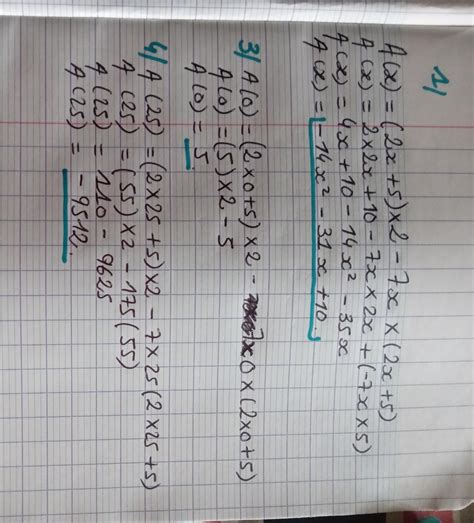 1)
A(x) = (2x+5)×2 - 7x × (2x+5)
A(x) = 2×2x+10 - 7x × 2x + (-7x × 5)
A(x) = 4x+10 - 14x² - 35x
A(x) = -14x² - 31x + 10.
3) A(0) = (2×0+5)×2 - 7×0×(2×0+5)
A(0) = (5)×2 - 5
A(0) = 5.
4) A(25) = (2×25+5)×2 - 7×25(2×25+5)
A(25) = (55)×2 - 175(55)
A(25) = 110 - 9625
A(25) = -9512.